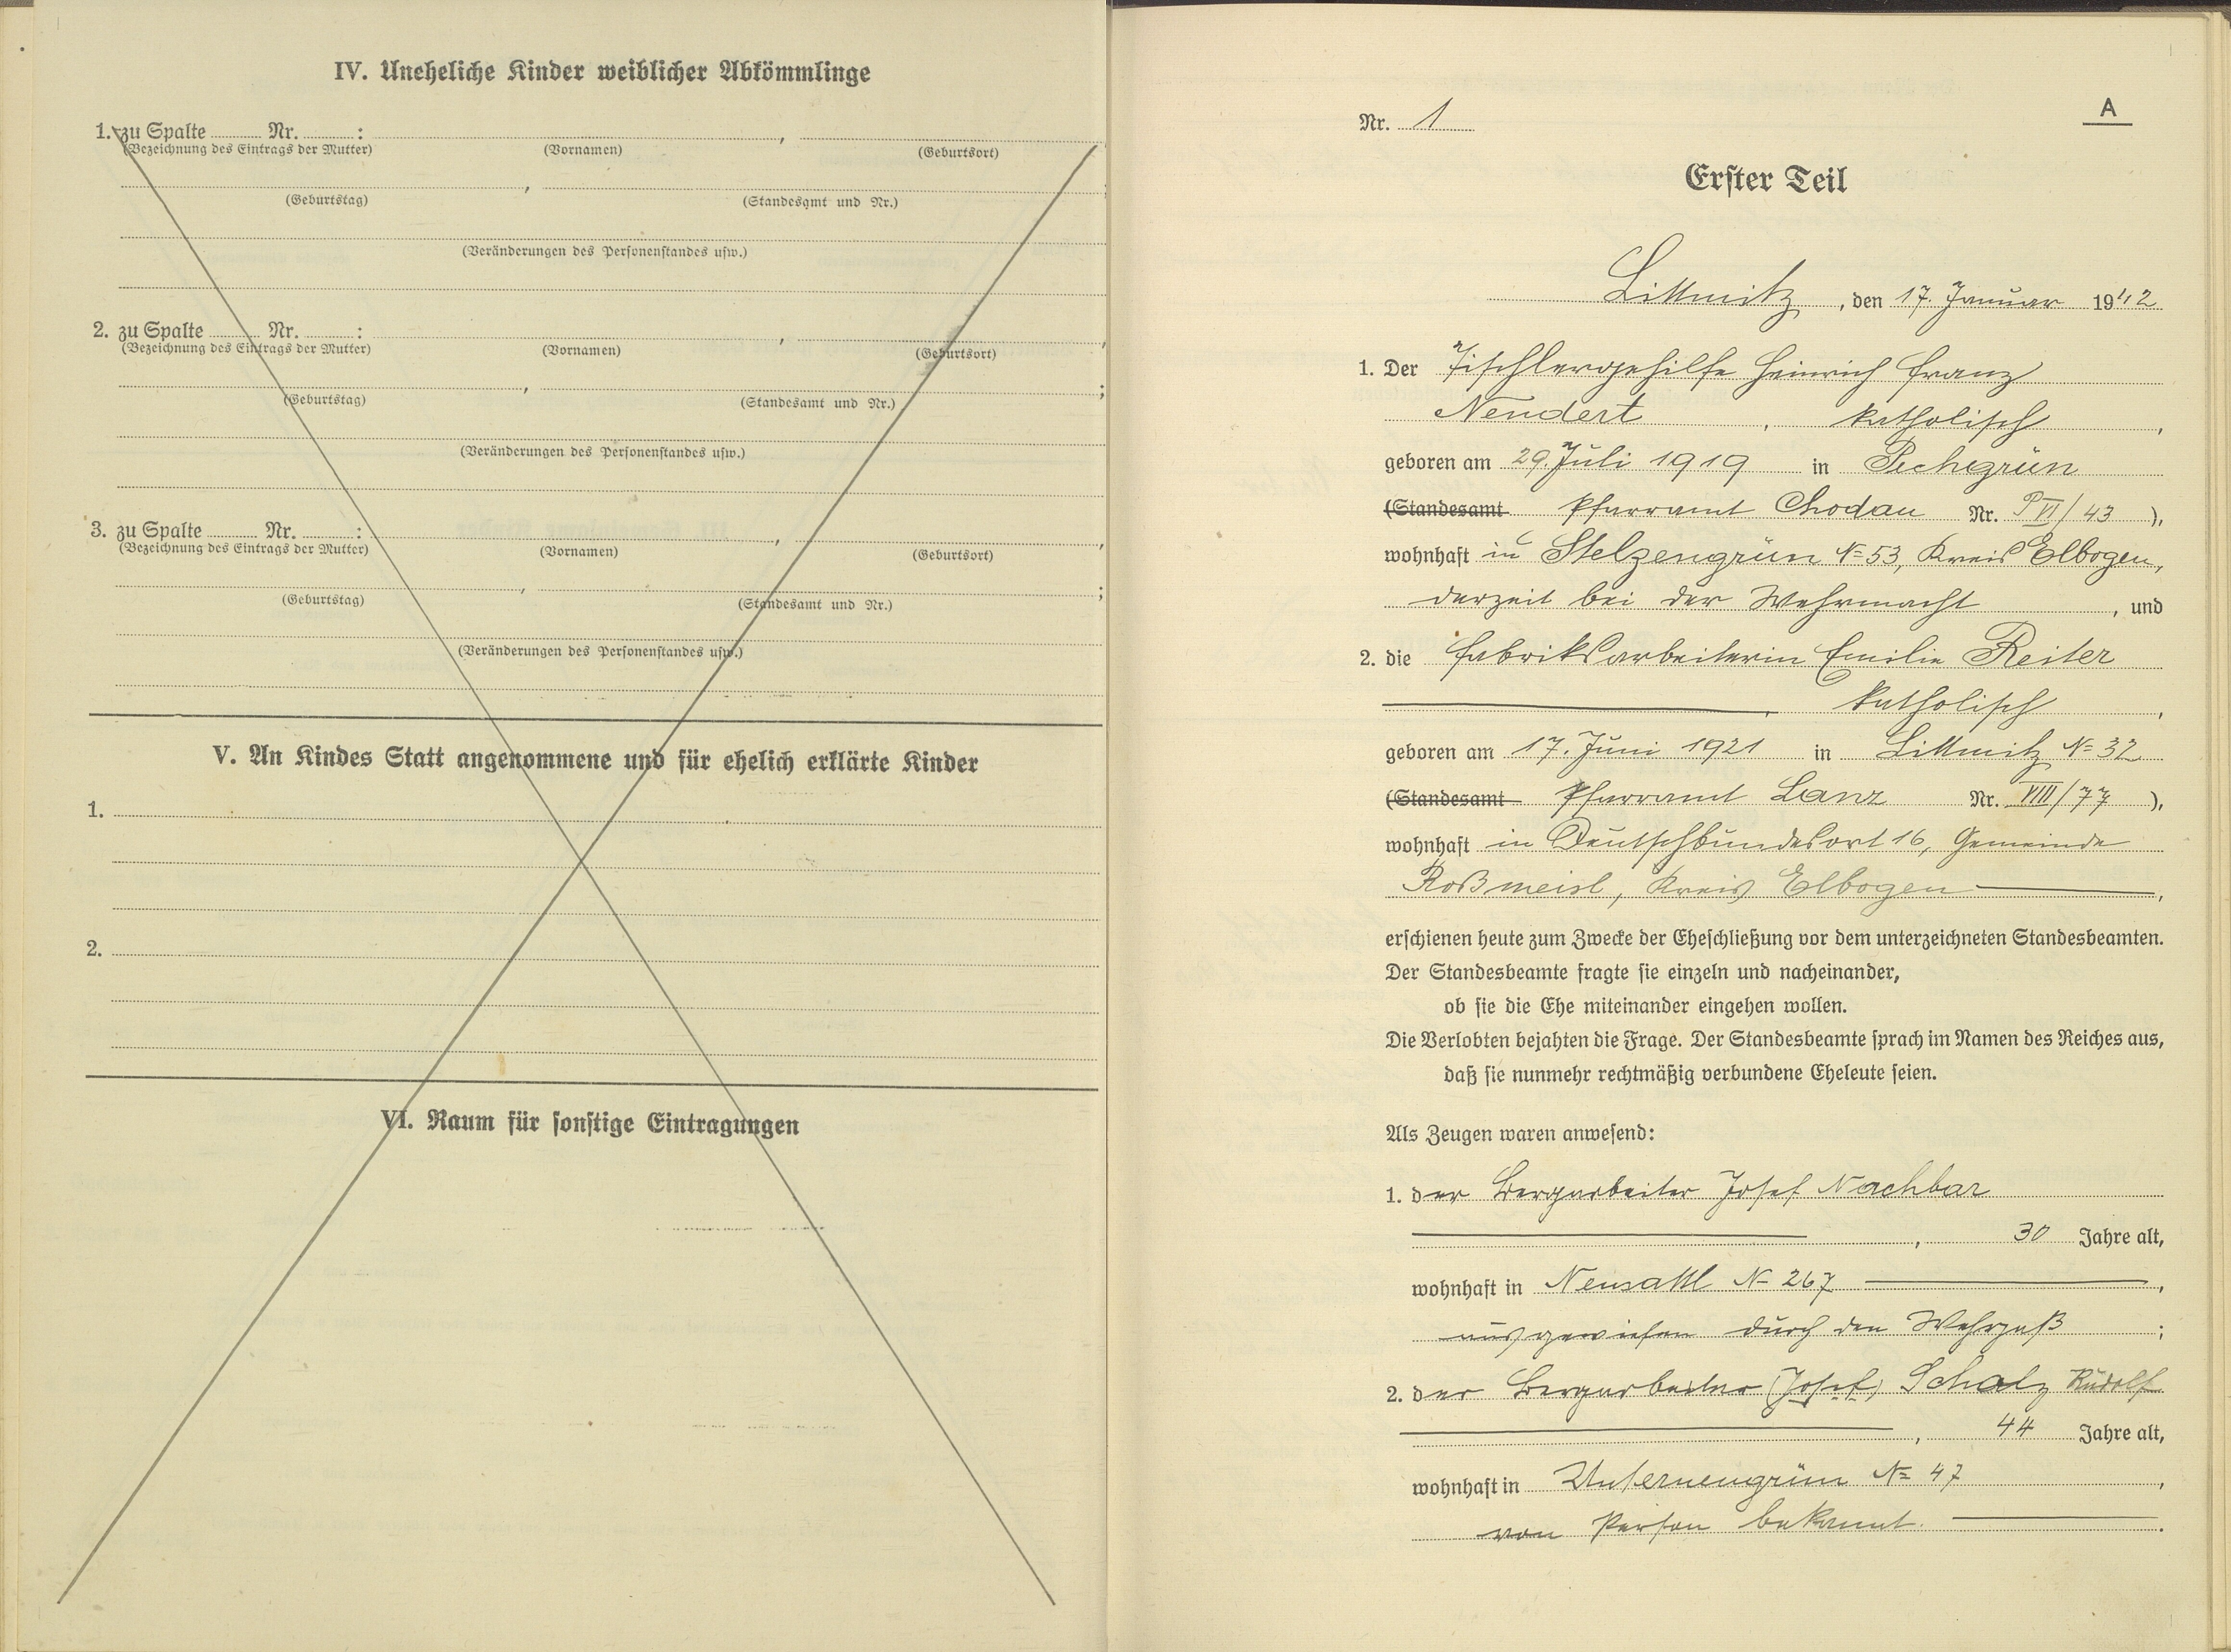 IV. Uneheliche Kinder weiblicher Abkömmlinge
1. zu Spalte ........ Nr. ........ :
(Bezeichnung des Eintrags der Mutter) (Vornamen) (Geburtsort)
(Geburtstag) (Standesamt und Nr.)
(Veränderungen des Personenstandes usw.)
2. zu Spalte ........ Nr. ........ :
(Bezeichnung des Eintrags der Mutter) (Vornamen) (Geburtsort)
(Geburtstag) (Standesamt und Nr.)
(Veränderungen des Personenstandes usw.)
3. zu Spalte ........ Nr. ........ :
(Bezeichnung des Eintrags der Mutter) (Vornamen) (Geburtsort)
(Geburtstag) (Standesamt und Nr.)
(Veränderungen des Personenstandes usw.)
V. An Kindes Statt angenommene und für ehelich erklärte Kinder
1.
2.
VI. Raum für sonstige Eintragungen
Nr. 1
A
Erster Teil
Littmitz, den 17. Januar 1942
1. Der Tischlergehilfe Heinrich Franz
Nendert, katholisch,
geboren am 29. Juli 1919 in Pechgrün
(Standesamt Pfarramt Chodau Nr. P VI/43 ),
wohnhaft in Stelzengrün № 53, Kreis Elbogen,
derzeit bei der Wehrmacht, und
2. die Fabriksarbeiterin Emilie Reiter
katholisch,
geboren am 17. Juni 1921 in Littmitz № 32
(Standesamt Pfarramt Lanz Nr. VIII/77 ),
wohnhaft in Deutschbundesort 16, Gemeinde
Roßmeisl, Kreis Elbogen,
erschienen heute zum Zwecke der Eheschließung vor dem unterzeichneten Standesbeamten.
Der Standesbeamte fragte sie einzeln und nacheinander,
ob sie die Ehe miteinander eingehen wollen.
Die Verlobten bejahten die Frage. Der Standesbeamte sprach im Namen des Reiches aus,
daß sie nunmehr rechtmäßig verbundene Eheleute seien.
Als Zeugen waren anwesend:
1. der Bergarbeiter Josef Nachbar
, 30 Jahre alt,
wohnhaft in Neusattl № 267,
ausgewiesen durch den Wehrpaß;
2. der Bergarbeiter (Josef) Scholz Rudolf
, 44 Jahre alt,
wohnhaft in Unterneugrün № 47,
von Person bekannt.